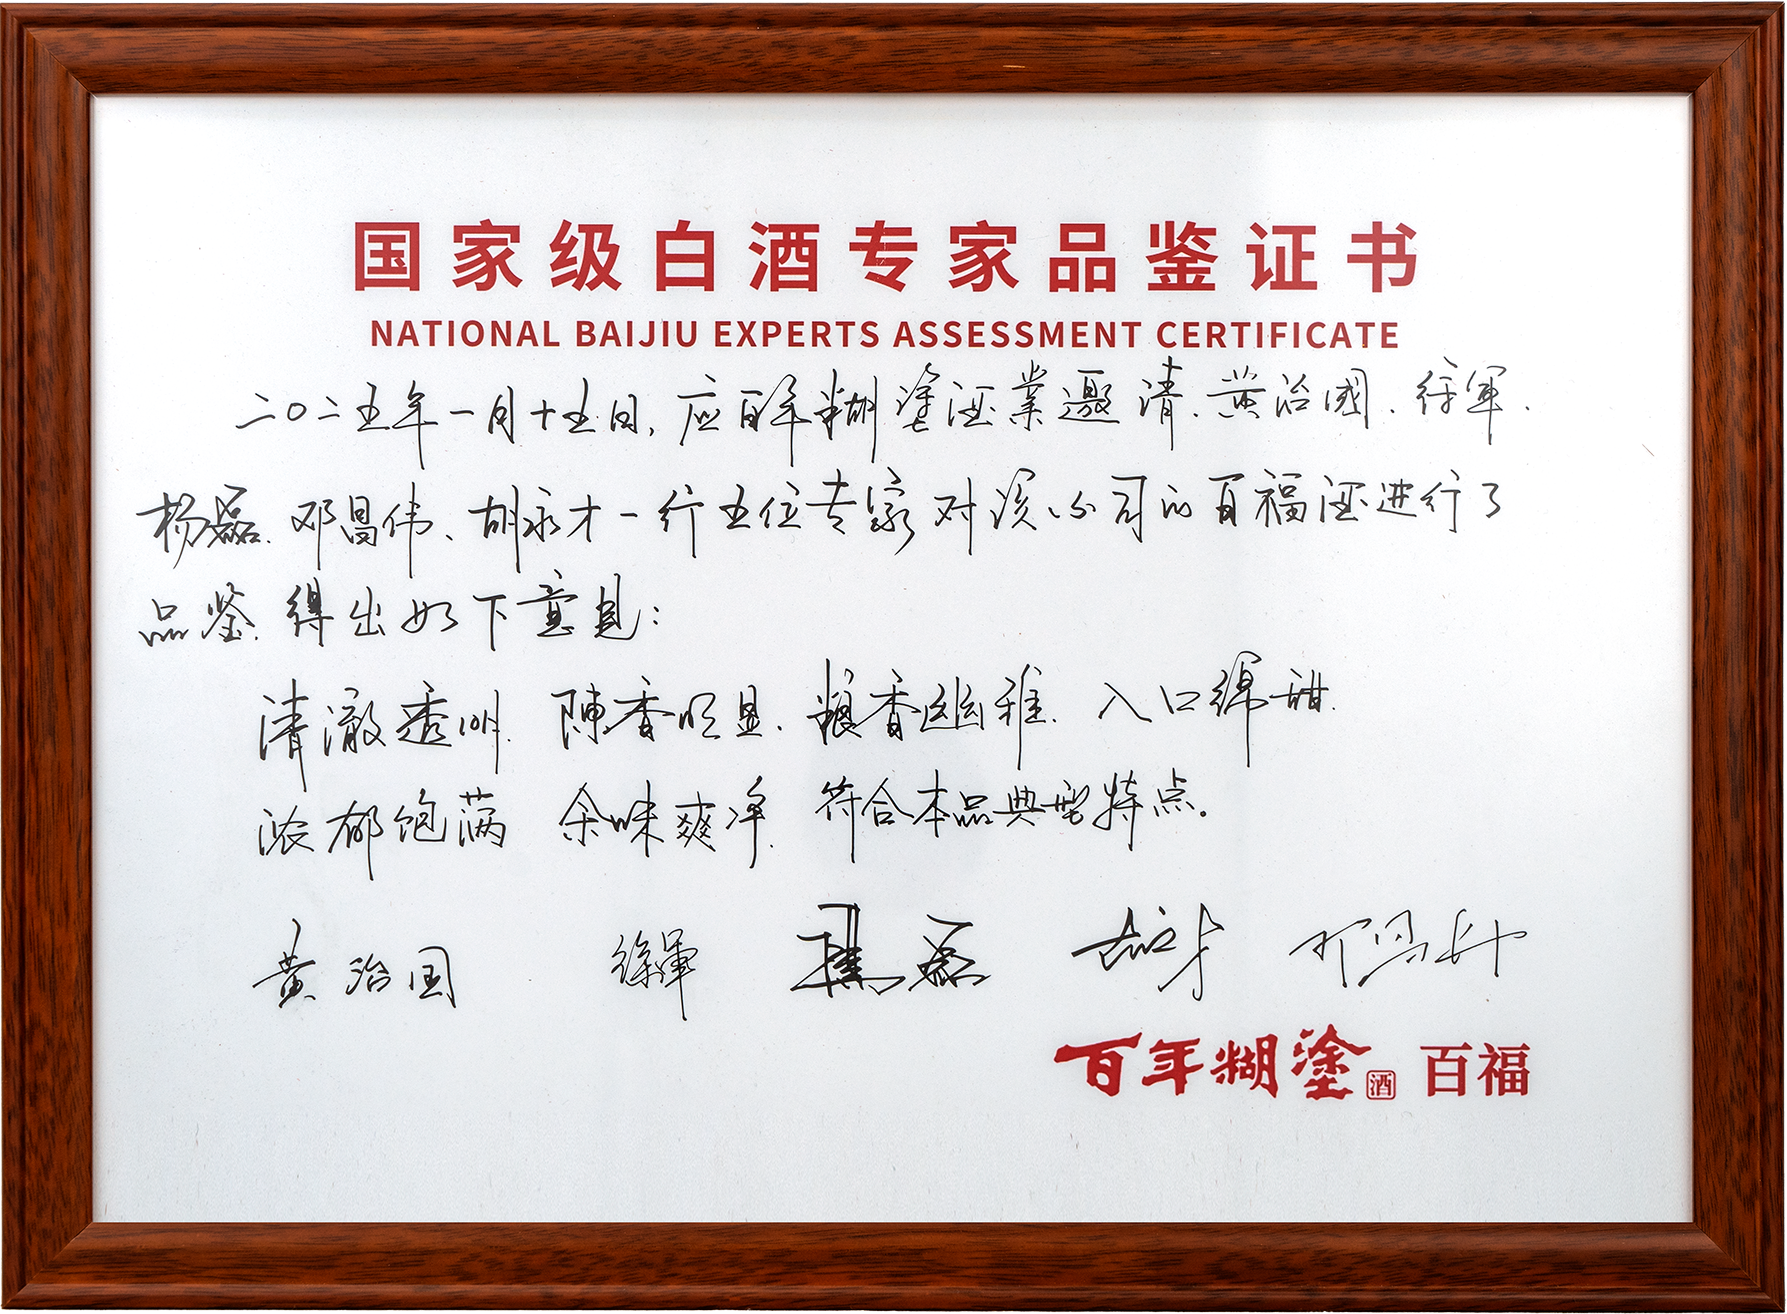 国家级白酒专家品鉴证书
NATIONAL BAIJIU EXPERTS ASSESSMENT CERTIFICATE
二〇二五年一月十五日，应百年糊塗酒業邀请，黄治國、徐軍、
杨磊、邓昌伟、胡永才一行五位专家对该公司的百福酒进行了
品鉴，得出如下意見：
清澈透明、陳香明显、粮香幽雅、入口绵甜、
浓郁饱满、余味爽净、符合本品典型特点。
黄治国 徐軍 楊磊 胡永才 邓昌伟
百年糊塗酒 百福